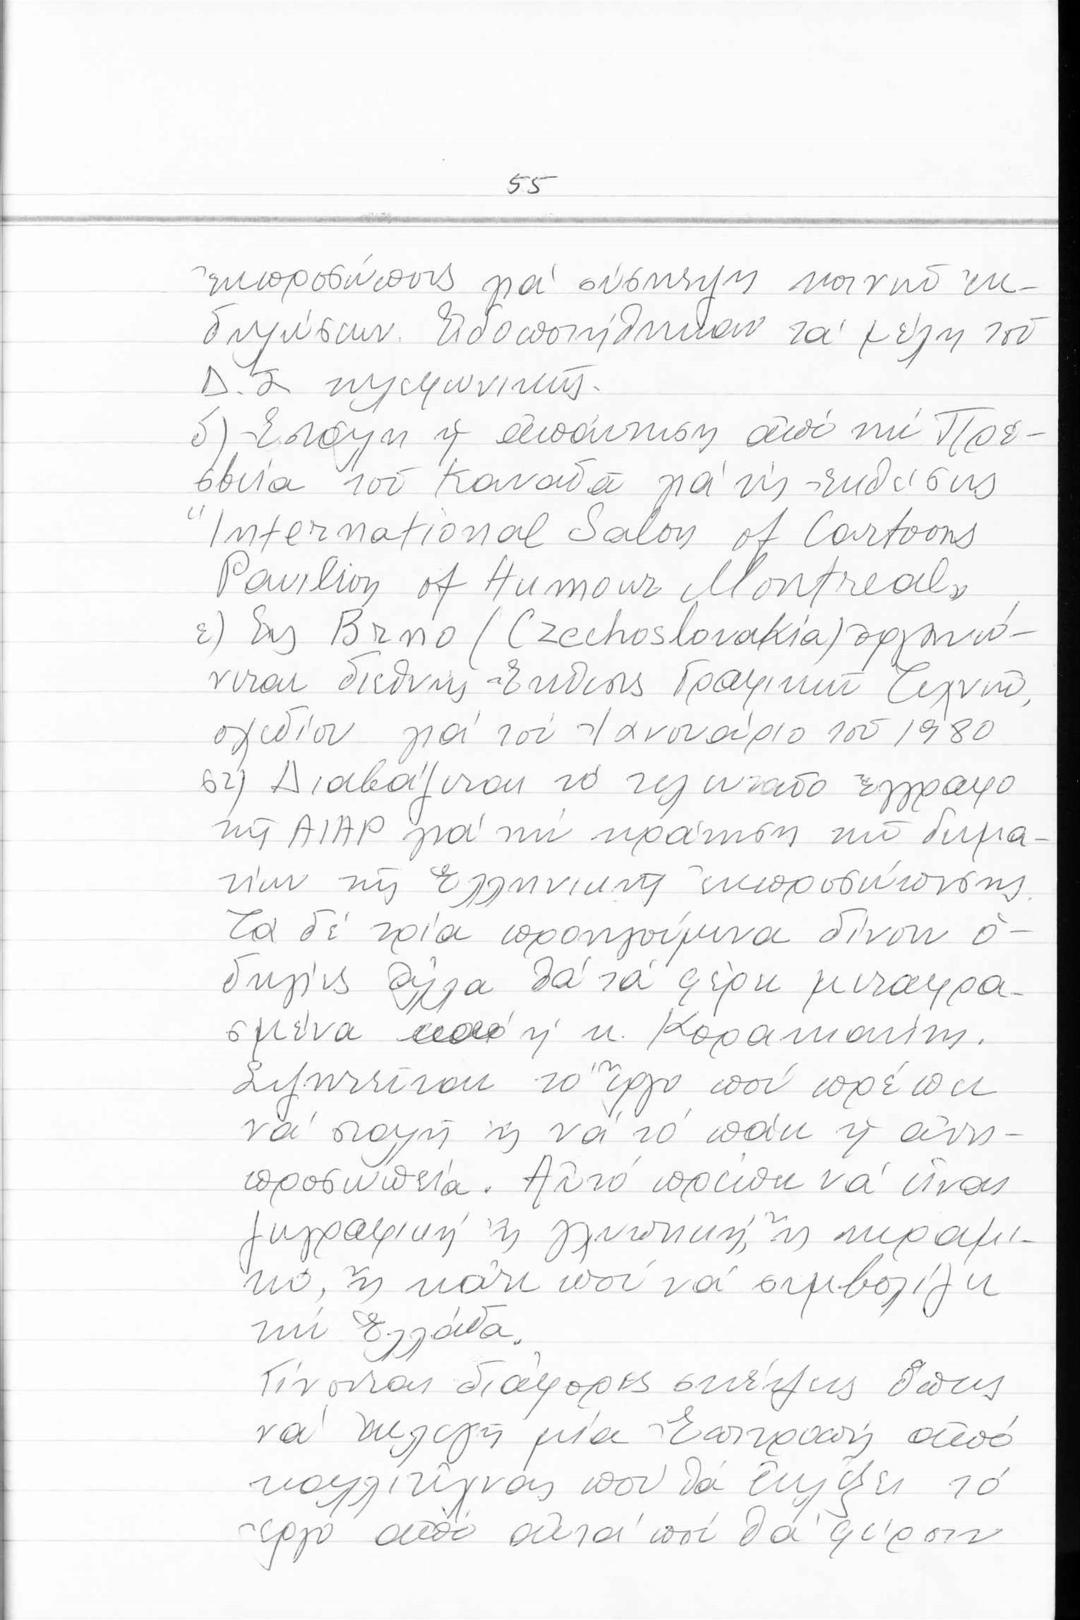 55
ἐκπροσώπους γιά σύσκεψη κοινῶν ἐκ-
δηλώσεων. Εἰδοποιήθηκαν τά μέλη τοῦ
Δ.Σ τηλεφωνικῶς.
δ) Ἐστάλη ἡ ἀπάντηση ἀπό τήν Πρε-
σβεία τοῦ Καναδᾶ γιά τίς ἐκθέσεις
"International Salon of Cartoons
Pavilion of Humour Montreal"
ε) Στις Brno (Czechoslovakia) ὀργανώ-
νεται διεθνής Ἔκθεσις Γραφικῶν Τεχνῶν,
σχεδίου γιά τόν Ἰανουάριο τοῦ 1980
στ) Διαβάζεται τό τελευταῖο ἔγγραφο
τῆς AIAP γιά τήν κράτηση τῶν δωμα-
τίων τῆς Ἑλληνικῆς ἐκπροσώπησης.
Τά δέ τρία προηγούμενα δίνουν ὁ-
δηγίες ἀλλά θά τά φέρει μεταφρα-
σμένα ἡ κ.
Συζητεῖται τό ἔργο πού πρέπει
νά σταλῆ ἤ νά τό πάει ἡ ἀντι-
προσωπεία. Αὐτό πρέπει νά εἶναι
ζωγραφική ἤ γλυπτική, ἤ κεραμι-
κό, ἤ κάτι πού νά συμβολίζει
τήν Ἑλλάδα.
Γίνονται διάφορες σκέψεις ὅπως
νά ἐκλεγῆ μία Ἐπιτροπή ἀπό
καλλιτέχνας πού θά ἐκλέξει τό
ἔργο ἀπό αὐτά πού θά φέρουν